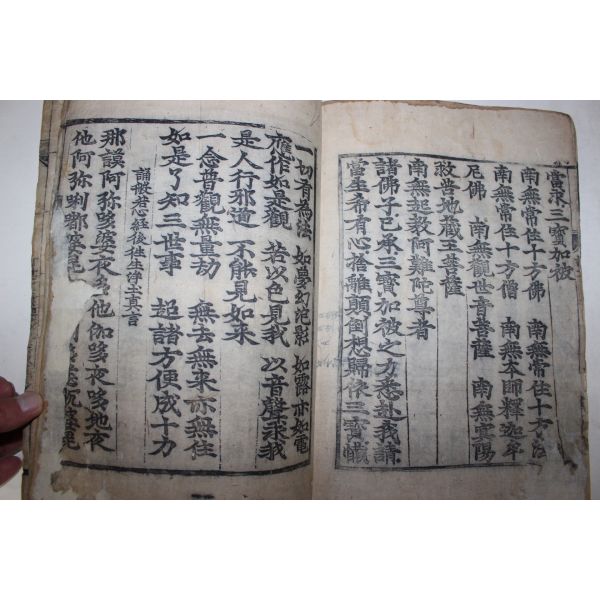 當求三寶加被
南無常住十方佛 南無常住十方法
南無常住十方僧 南無本師釋迦牟
尼佛 南無觀世音菩薩 南無冥陽
救苦地藏王菩薩
南無起教阿難陀尊者
諸佛子已承三寶加被之力悉赴我請
當生希有心捨離顚倒想歸依三寶懺
一切有為法 如夢幻泡影 如露亦如電
應作如是觀 若以色見我 以音聲求我
是人行邪道 不能見如來
一念普觀無量劫 無去無來亦無住
如是了知三世事 超諸方便成十力
誦般若心經後往生淨土真言
那謨阿弥哆婆夜哆他伽哆夜哆地夜
他阿弥唎都婆毘